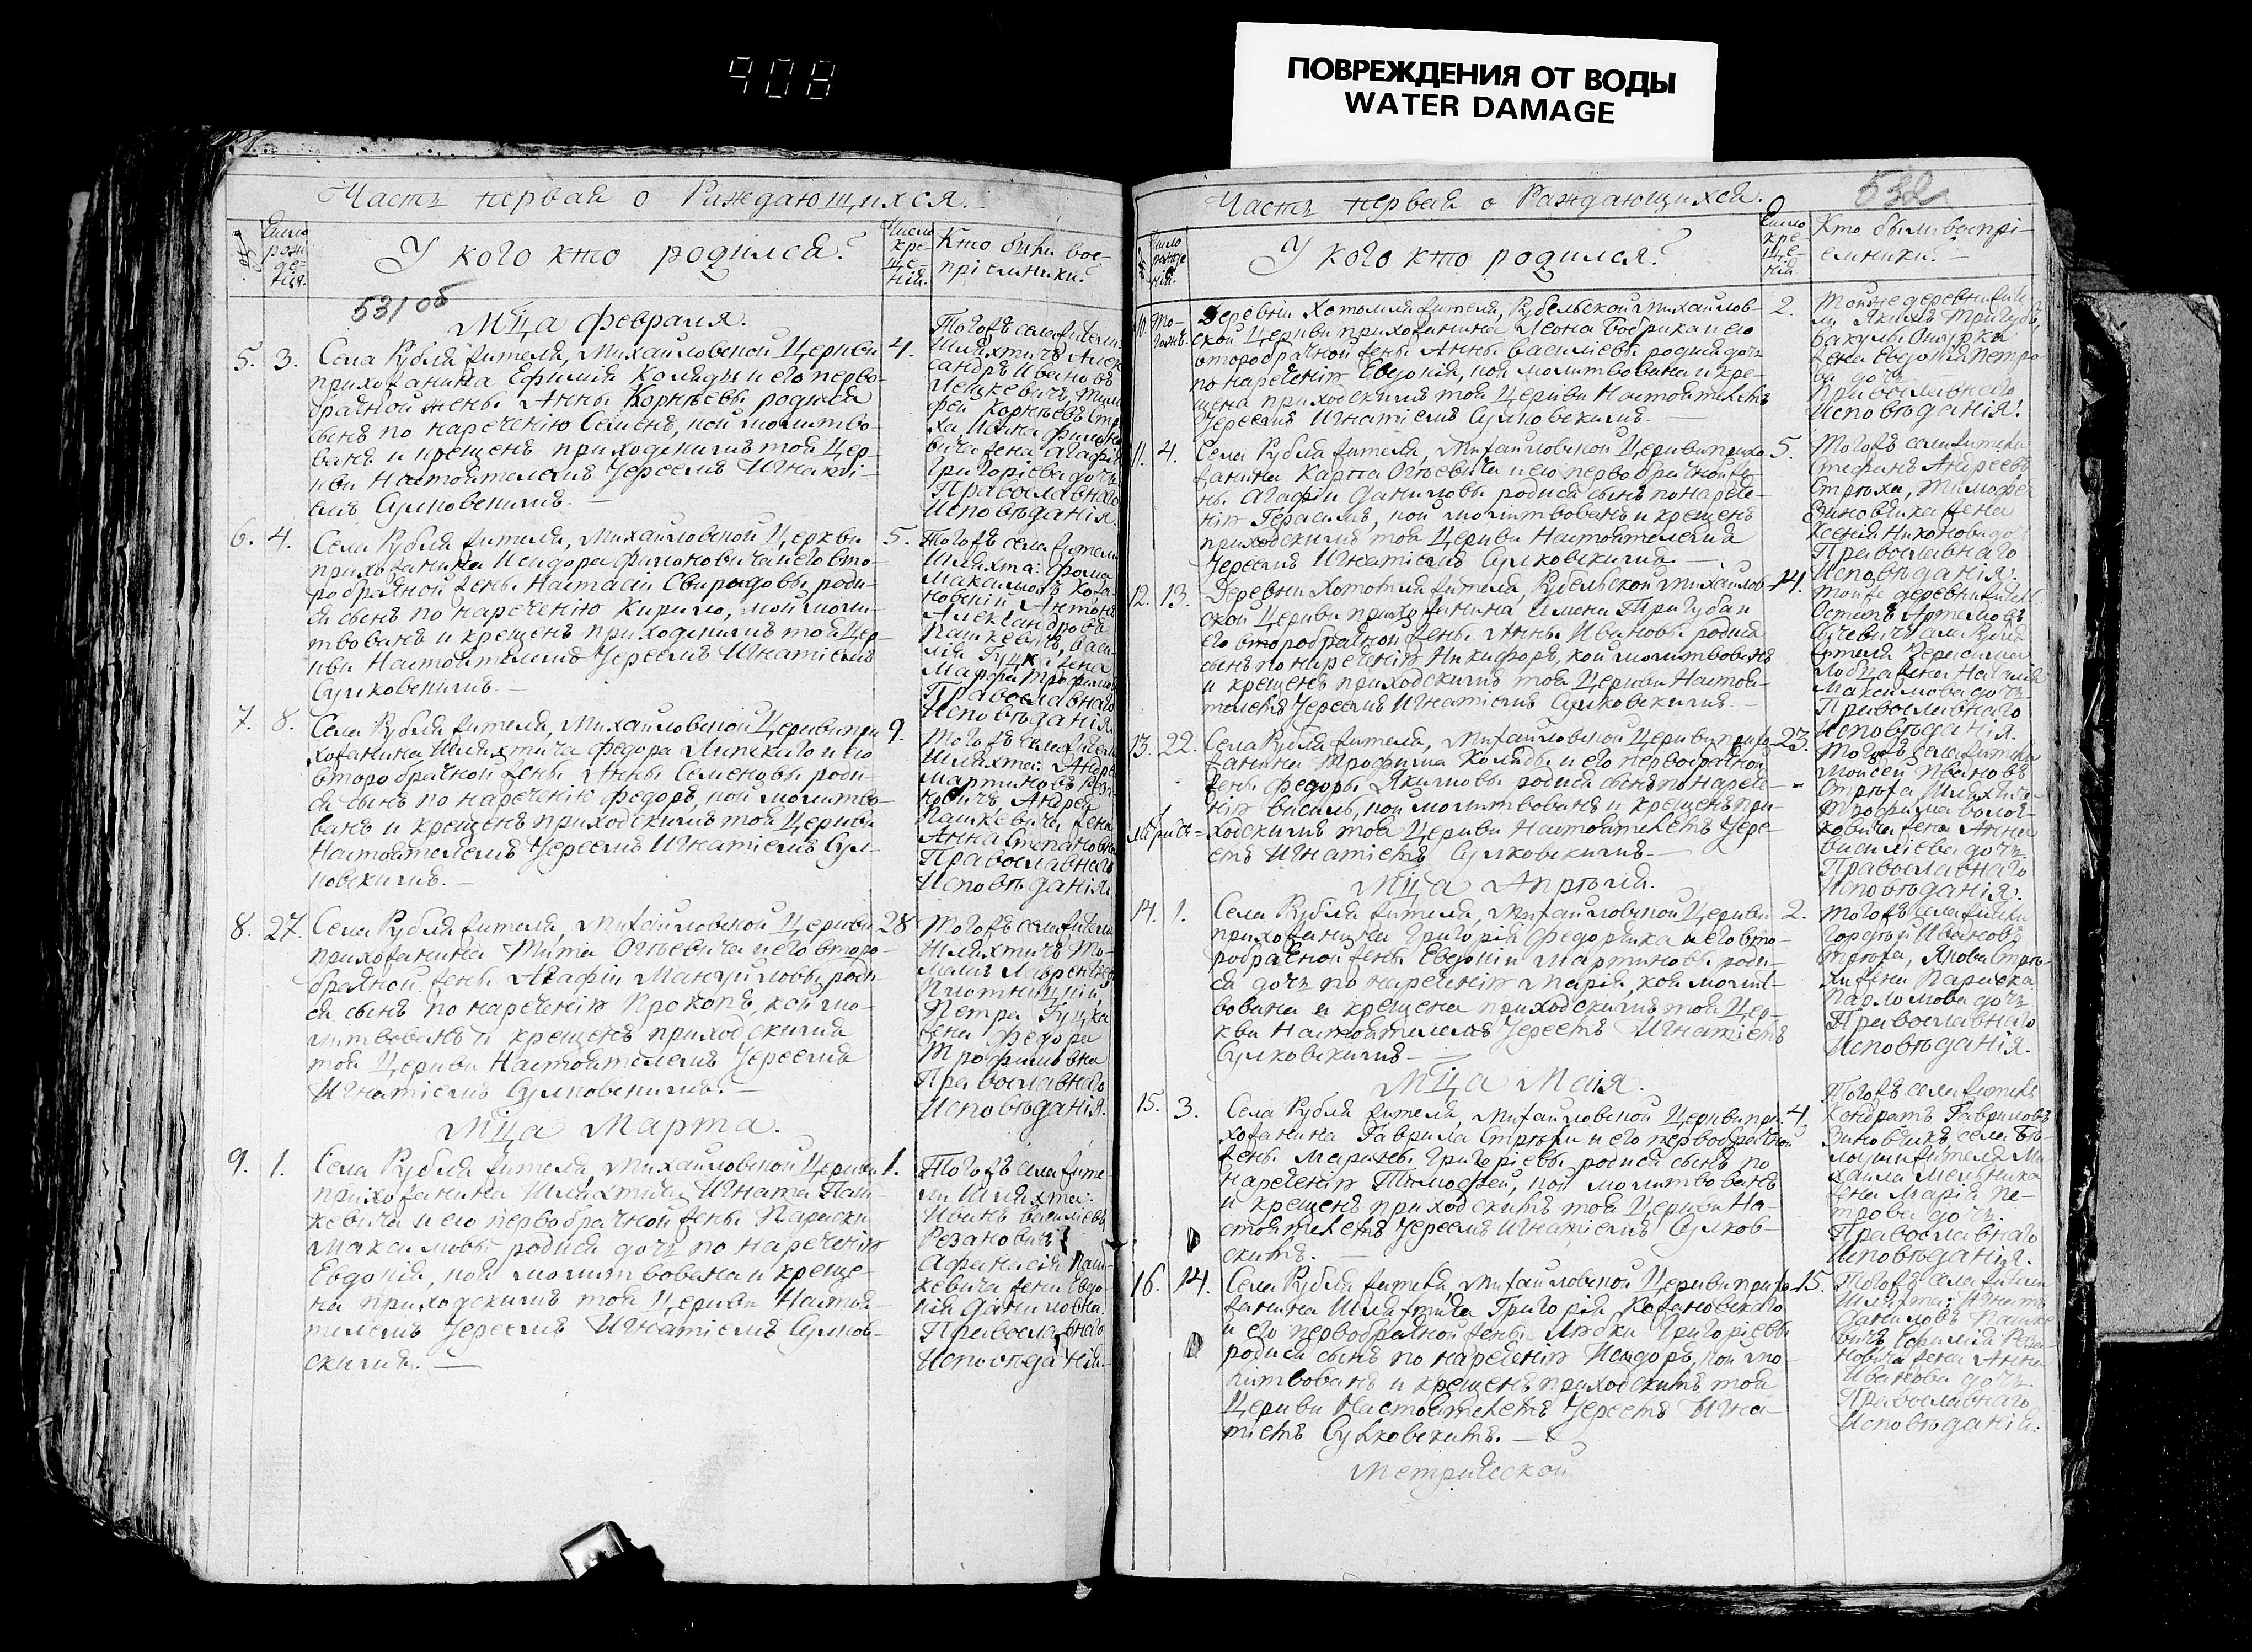 908
ПОВРЕЖДЕНИЯ ОТ ВОДЫ
WATER DAMAGE
Часть первая о Раждающихся.
Число рож-де-нія.
У кого кто родился?
Число кре-ще-нія.
Кто были вос-
пріемники?
531 об
Мца февраля.
5. 3. Села Рубля жителя, Михайловской Церкви 4.
прихожанина Ефимія Коляды и его перво-
брачной жены Анны Корнѣевы родился
сынъ по нареченію Семенъ, кой молитво-
ванъ и крещенъ приходскимъ той Цер-
кви Настоятелемъ Іереемъ Игнаті-
емъ Сулковскимъ. —
Тогожъ села жители
Шляхтичъ Алек
сандръ Ивановъ
Пешкевичъ, Тимо
фей Корнѣевъ Стрѣ
ха
жена Агафія
Григоріева дочь
Православнаго
Исповѣданія.
6. 4. Села Рубля жителя, Михайловской Церкви 5.
прихожанина Исидора Филоновича и его вто-
робрачной жены Настасіи Свиридовы роди-
ся сынъ по нареченію Кирило, кой моли-
твованъ и крещенъ приходскимъ той Цер-
кви Настоятелемъ Іереемъ Игнатіемъ
Сулковскимъ. —
Тогожъ села жители
Шляхта: Фома
Максимовъ Кожа
новскій и Антонъ
Александровъ
Пашкевичъ, Васи-
лія Гуцка жена
Марфа Трофимова
Православнаго
Исповѣданія.
7. 8. Села Рубля жителя, Михайловской Церкви при 9.
хожанина Шляхтича Федора Липскаго и его
второбрачной жены Анны Семеновы роди-
ся сынъ по нареченію Федоръ, кой молитво-
ванъ и крещенъ приходскимъ той Церкви
Настоятелемъ Іереемъ Игнатіемъ Сул-
ковскимъ. —
Тогожъ села жители
Шляхта: Андрей
Мартиновъ Реза-
новичъ, Андрея
Пашкевича жена
Анна Степановна
Православнаго
Исповѣданія.
8. 27. Села Рубля жителя, Михайловской Церкви 28
прихожанина Тита Огіевича и его второ-
брачной жены Агафіи Мануиловы роди-
ся сынъ по нареченію Прокопъ, кой мо-
литвованъ и крещенъ приходскимъ
той Церкви Настоятелемъ Іереемъ
Игнатіемъ Сулковскимъ. —
Тогожъ села жители
Шляхтичъ То-
машъ Лаврентіевъ
Плотницкій,
Петра Гуцка
жена Федора
Трофимовна
Православнаго
Исповѣданія.
Мца Марта.
9. 1. Села Рубля жителя, Михайловской Церкви 1.
прихожанина Шляхтича Игната Паш-
кевича и его первобрачной жены Параски
Максимовы родися дочь по нареченію
Евдокія, коя молитвована и креще-
на приходскимъ той Церкви Настоя-
телемъ Іереемъ Игнатіемъ Сулков-
скимъ. —
Тогожъ села жите-
ли Шляхта:
Иванъ Василіевъ
Резановичъ
Афанасія Паш-
кевича жена Евдо-
кія Даниловна
Православнаго
Исповѣданія.
Часть первая о Раждающихся.
532
Число рожде нія.
У кого кто родился?
Число кре-ще-нія
Кто были воспрі-
емники? —
10. То-гожъ. Деревни Хотомля жителя, Рубельской Михайлов- 2.
ской Церкви прихожанина Леона Бобрика и его
второбрачной жены Анны Василіевы родися дочь
по нареченію Евдокія, коя молитвована и кре-
щена приходскимъ той Церкви Настоятелемъ
Іереемъ Игнатіемъ Сулковскимъ. —
Той же деревни жите
ли Якимъ Тригубъ,
жена Евдокія Петро-
ва дочь
Православнаго
Исповѣданія.
11. 4. Села Рубля жителя, Михайловской Церкви прихо 5.
жанина Карпа Огіевича и его первобрачной же-
ны Агафіи Даниловы родися сынъ по нарече-
нію Герасимъ, кой молитвованъ и крещенъ
приходскимъ той Церкви Настоятелемъ
Іереемъ Игнатіемъ Сулковскимъ. —
Тогожъ села жители
Стефанъ Андреевъ
Стрѣха, Тимофея
Зиновчика жена
Ксенія Никонова до
Православнаго
Исповѣданія.
12. 13. Деревни Хотомля жителя, Рубельской Михайлов- 14.
ской Церкви прихожанина Семена Тригуба и
его второбрачной жены Анны Ивановы родися
сынъ по нареченію Никифоръ, кой молитвованъ
и крещенъ приходскимъ той Церкви Настоя-
телемъ Іереемъ Игнатіемъ Сулковскимъ. —
Той же деревни жител
Остапъ Артемовъ
села Рубля
жителя Герасима
жена Наталія
Максимова дочь
Православнаго
Исповѣданія.
13. 22. Села Рубля жителя, Михайловской Церкви прихо 23.
жанина Трофима Коляды и его первобрачной
жены Федоры Якимовы родися сынъ по нарече-
нію Василь, кой молитвованъ и крещенъ при-
ходскимъ той Церкви Настоятелемъ Іере-
емъ Игнатіемъ Сулковскимъ. —
Тогожъ села жители
Моисей Ивановъ
Стрѣха Шляхтича
Трофима
жена Анна
Василіева дочь
Православнаго
Исповѣданія.
Мца Апрѣля.
14. 1. Села Рубля жителя, Михайловской Церкви 2.
прихожанина Григорія Федорчка и его вто-
робрачной жены Евдокіи Мартиновы роди-
ся дочь по нареченію Марія, коя молит-
вована и крещена приходскимъ той Цер-
кви Настоятелемъ Іереемъ Игнатіемъ
Сулковскимъ —
Тогожъ села жители
Гордѣй Ивановъ
Стрѣха, Якова Стрѣ-
хи жена Параска
Парломова дочь
Православнаго
Исповѣданія.
Мца Маія.
15. 3. Села Рубля жителя, Михайловской Церкви при 4.
хожанина Гаврила Стрѣхи и его первобрачной
жены Марины Григоріевы родися сынъ по
нареченію Тимофей, кой молитвованъ
и крещенъ приходскимъ той Церкви На-
стоятелемъ Іереемъ Игнатіемъ Сулков-
скимъ. —
Тогожъ села житель
Кондратъ Гавриловъ
Зиновчикъ села Бѣ-
жителя Ми
хаила Мельника
жена Марія Пе-
трова дочь.
Православнаго
Исповѣданія.
16. 14. Села Рубля жителя, Михайловской Церкви прихо 15.
жанина Шляхтича Григорія Кожановскаго
и его первобрачной жены Любки Григоріевы
родися сынъ по нареченію Исидоръ, кой мо-
литвованъ и крещенъ приходскимъ той
Церкви Настоятелемъ Іереемъ Игна-
тіемъ Сулковскимъ. —
Тогожъ села жители
Шляхта: Игнатъ
Даниловъ Пашке
вичъ Ефимія Реза-
новича жена Анна
Иванова дочь
Православнаго
Исповѣданія.
Метрической